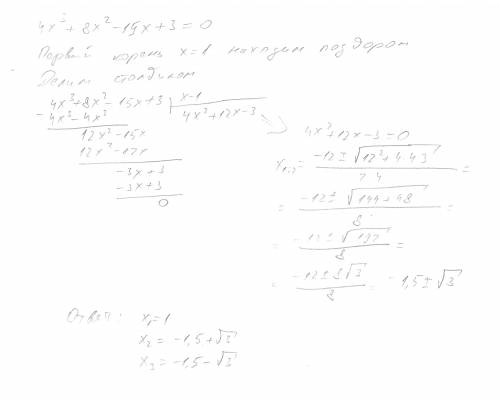 4x³ + 8x² - 15x + 3 = 0
Первый корень x = 1 находим подбором
Делим столбиком
4x³ + 8x² - 15x + 3 | x - 1
4x³ - 4x² | 4x² + 12x - 3
12x² - 15x
12x² - 12x
-3x + 3
-3x + 3
0
4x² + 12x - 3 = 0
x₁,₂ = (-12 ± √(12² + 4·4·3)) / (2·4) =
= (-12 ± √(144 + 48)) / 8 =
= (-12 ± √192) / 8 =
= (-12 ± 8√3) / 8 = -1,5 ± √3
Ответ: x₁ = 1
x₂ = -1,5 + √3
x₃ = -1,5 - √3